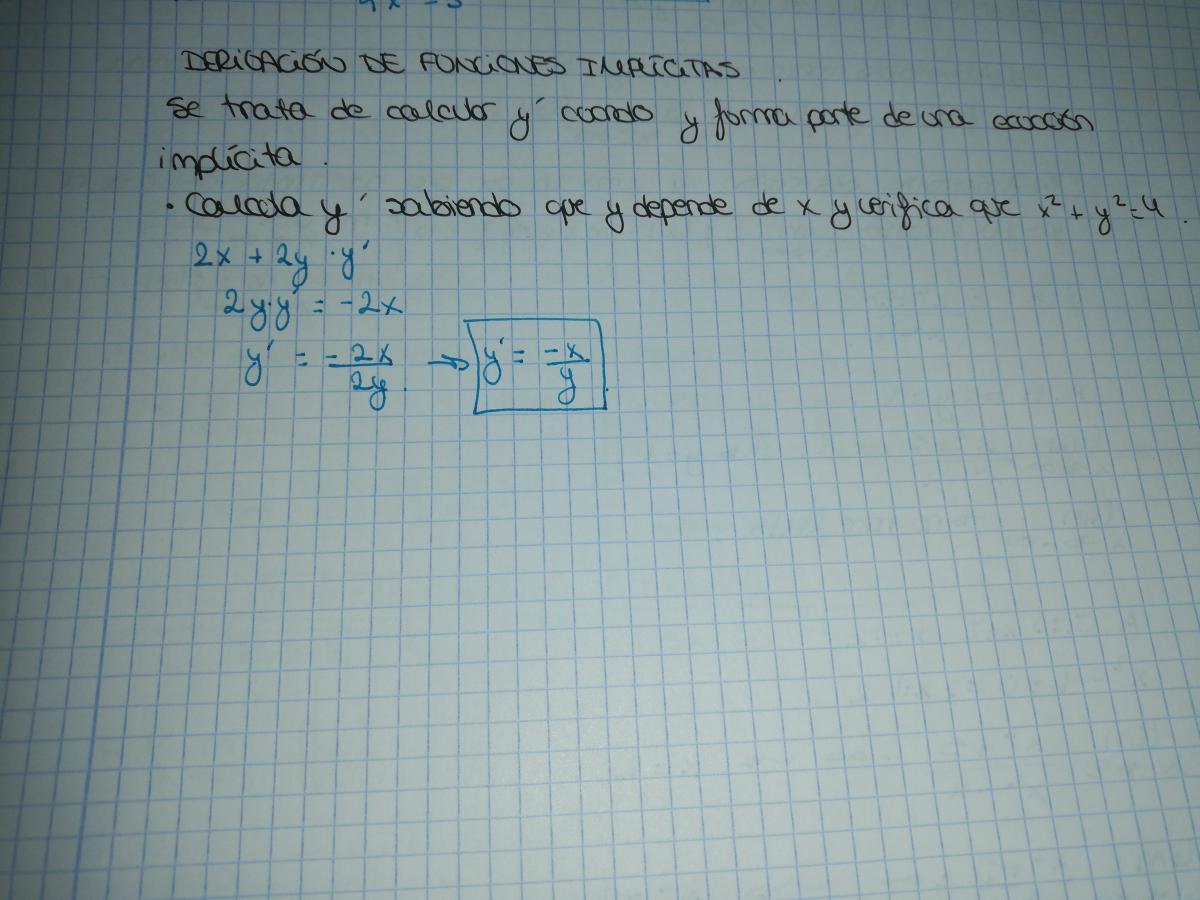 DERIVACIÓN DE FUNCIONES IMPLÍCITAS.
Se trata de calcular y' cuando y forma parte de una ecuación
implícita.
· Calcula y' sabiendo que y depende de x y verifica que x² + y² = 4.
2x + 2y · y'
2y·y' = -2x
y' = -2x/2y. → y' = -x/y.